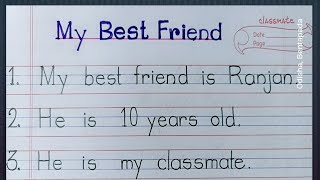 My Best Friend
classmate
Date
Page
1. My best friend is Ranjan.
2. He is 10 years old.
3. He is my classmate.